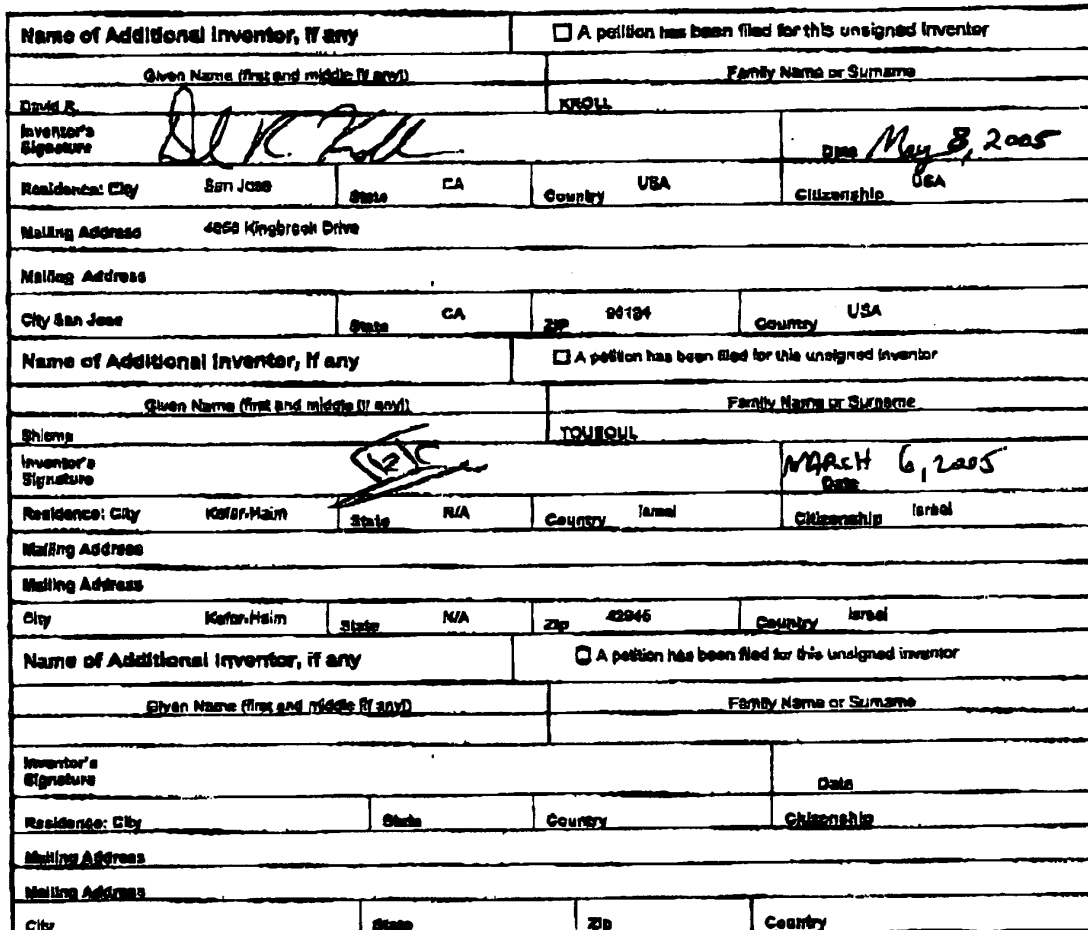 Name of Additional Inventor, if any ☐ A petition has been filed for this unsigned inventor
Given Name (first and middle [if any]) Family Name or Surname
David R. KROLL
Inventor's Signature Date May 8, 2005
Residence: City San Jose State CA Country USA Citizenship USA
Mailing Address Kingbrook Drive
Mailing Address
City San Jose State CA ZIP Country USA
Name of Additional Inventor, if any ☐ A petition has been filed for this unsigned inventor
Given Name (first and middle [if any]) Family Name or Surname
Shlomo TOUBOUL
Inventor's Signature MARCH 6, 2005 Date
Residence: City Kefar-Haim State N/A Country Israel Citizenship Israel
Mailing Address
Mailing Address
City Kefar-Haim State N/A Zip 42945 Country Israel
Name of Additional Inventor, if any ☐ A petition has been filed for this unsigned inventor
Given Name (first and middle [if any]) Family Name or Surname
Inventor's Signature Date
Residence: City State Country Citizenship
Mailing Address
Mailing Address
City State Zip Country